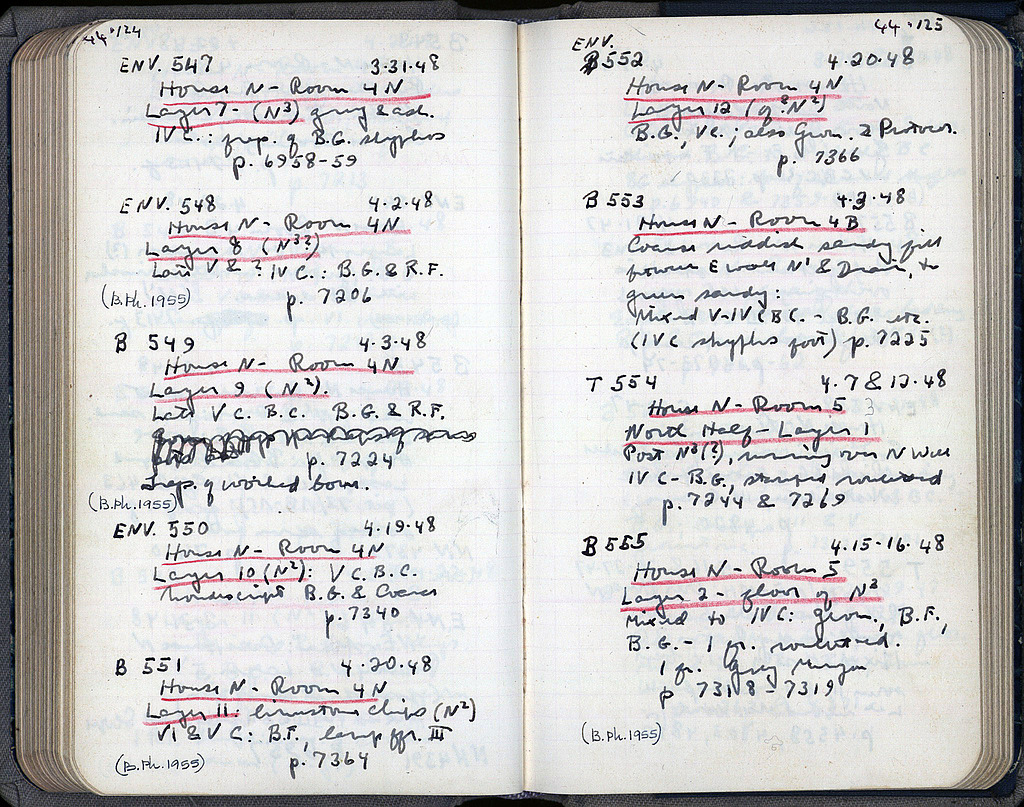 44·124
ENV. 547 3·31·48
House N - Room 4N
Layer 7 - (N³) grey & ash.
IV C.: frag. of B.G. skyphos
p. 6958-59
ENV. 548 4·2·48
House N - Room 4N
Layer 8 (N³?)
Late V & ? IV C.: B.G. & R.F.
(B.Ph. 1955) p. 7206
B 549 4·3·48
House N - Room 4N
Layer 9 (N²).
Late V C. B.C. B.G. & R.F.
p. 7224
Frag. of worked bone.
(B.Ph. 1955)
ENV. 550 4·19·48
House N - Room 4N
Layer 10 (N²): V C. B.C.
Nondescript B.G. & Coarse
p. 7340
B 551 4·20·48
House N - Room 4N
Layer 11: limestone chips (N²)
VI & V C: B.F., lamp fr. III
(B.Ph. 1955) p. 7364
44·125
ENV.
552 4·20·48
House N - Room 4N
Layer 12 (of ? N²)
B.G., VC.; also Geom. & Protocor.
p. 7366
B 553 4·3·48
House N - Room 4B
Coarse reddish sandy fill
between E wall N¹ & Drain, to
green sandy:
Mixed V-IV C B.C. - B.G. etc.
(IV C skyphos foot) p. 7225
T 554 4·7 & 12·48
House N - Room 5 3
North Half - Layer 1
Post N³(?), running over N Wall
IV C - B.G., stamped rouletted
p. 7244 & 7269
B 555 4·15-16·48
House N - Room 5
Layer 2 - floor of N³
Mixed to IV C: Geom., B.F.,
B.G. - 1 fr. rouletted.
1 fr. Grey Minyan
p 7318 - 7319
(B.Ph. 1955)